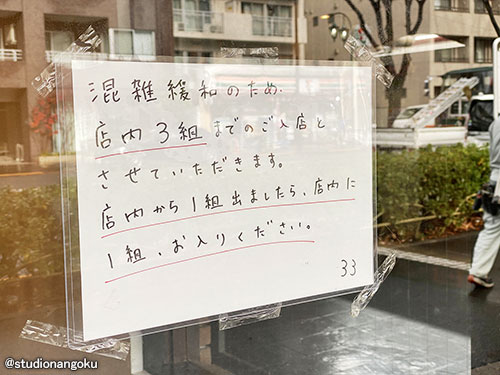 混雑緩和のため.
店内3組までのご入店と
させていただきます。
店内から1組出ましたら、店内に
1組、お入りください。
33
@studionangoku